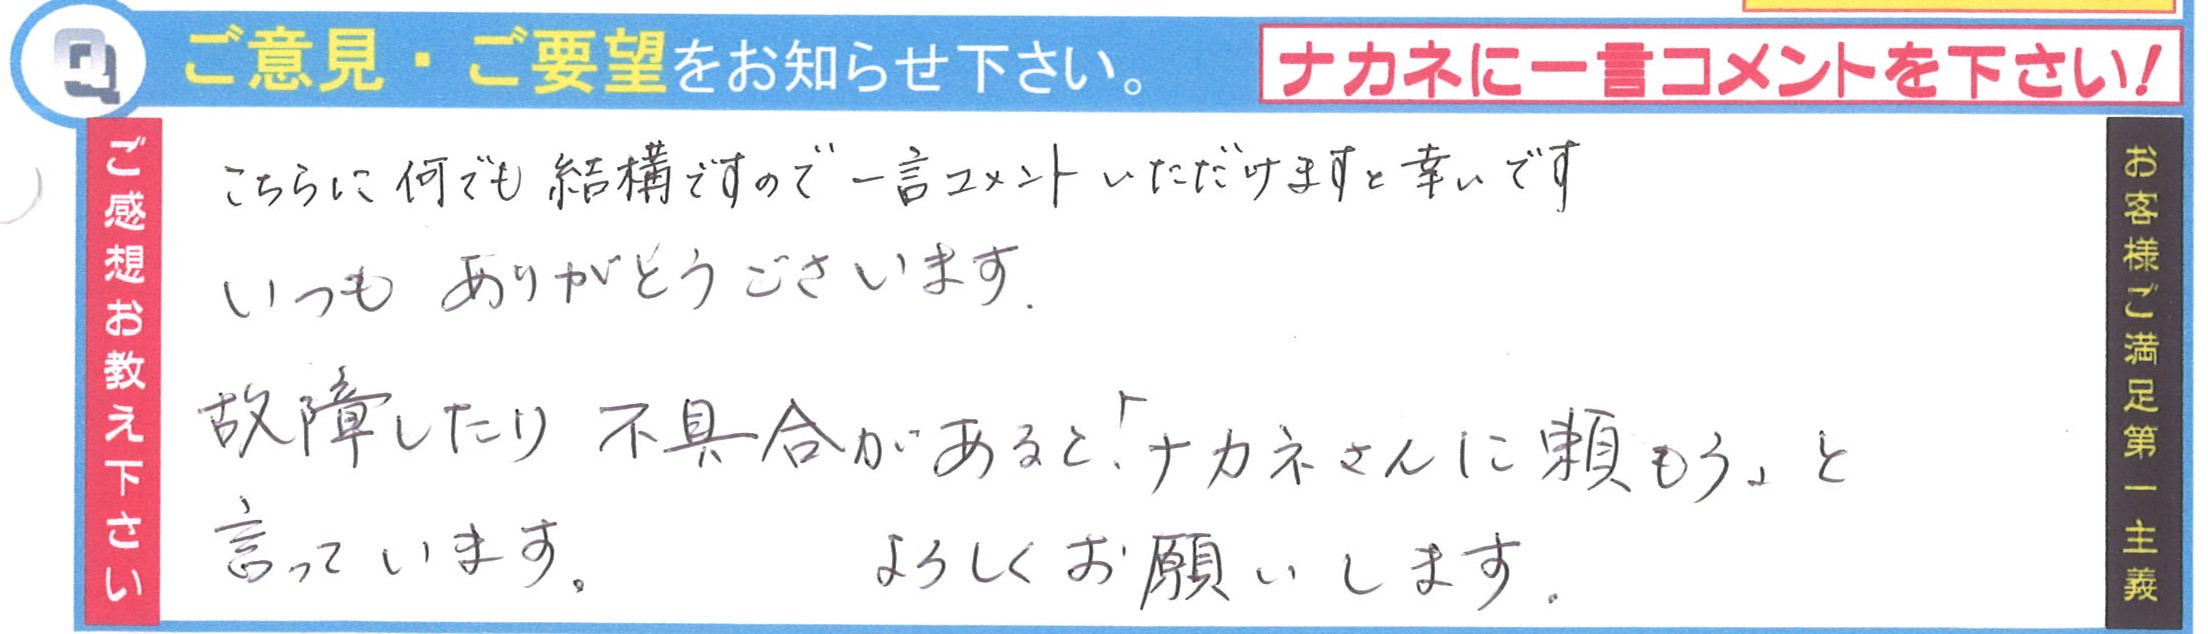 Q ご意見・ご要望をお知らせ下さい。
ナカネに一言コメントを下さい!
ご感想お教え下さい
こちらに何でも結構ですので一言コメントいただけますと幸いです
いつもありがとうございます.
故障したり不具合があると「ナカネさんに頼もう」と
言っています。 よろしくお願いします.
お客様ご満足第一主義